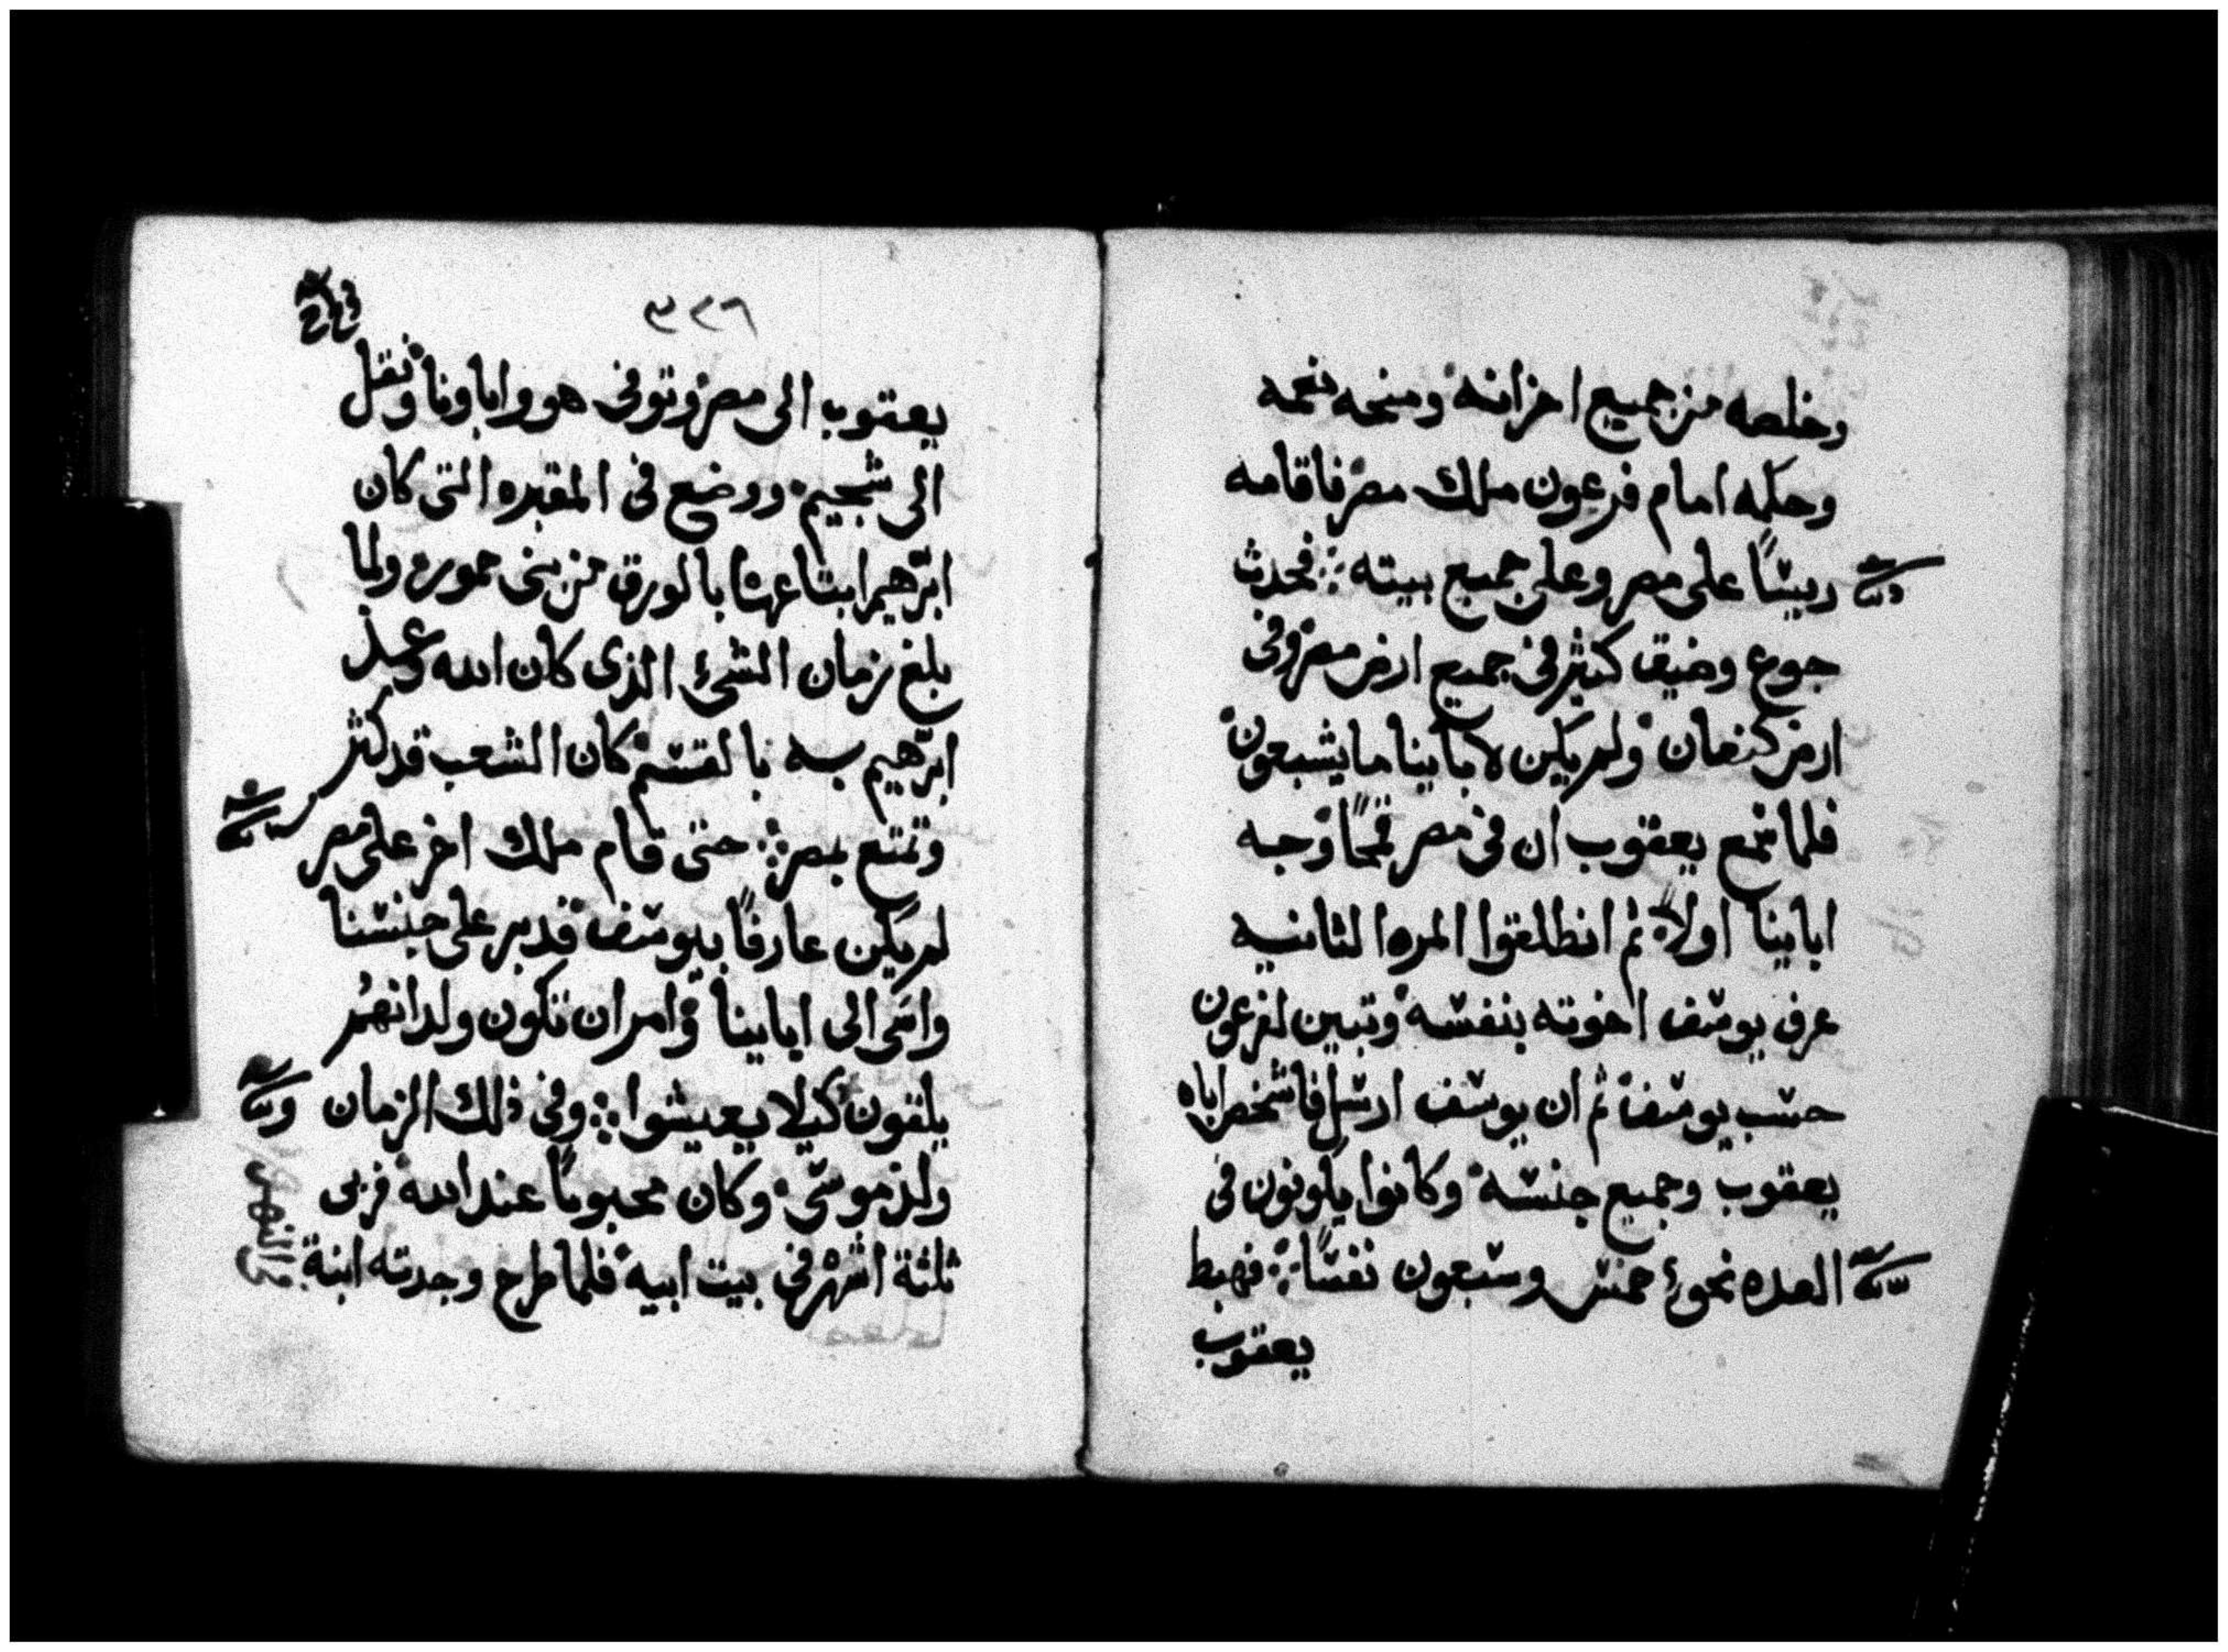 وخلصه من جميع احزانه ومنحه نعمه
وحكمه امام فرعون ملك مصر فاقامه
ريسًا على مصر وعلى جميع بيته ܀ فحدث
جوع وضيق كثير فى جميع ارض مصر وفى
ارض كنعان ولم يكن لاباينا ما يشبعون
فلما سمع يعقوب ان فى مصر قمحًا وجه
ابابينا اولاً ثم انطلقوا المره الثانيه
عرف يوسف اخوته بنفسه وتبين لفرعون
حسب يوسف ثم ان يوسف ارسل فاشخص اباه
يعقوب وجميع جنسه وكانوا ياونون فى
العده نحوئ خمس وسبعون نفسًا ܀ فهبط
يعقوب
٣٢٦
يعقوب الى مصر وتوفى هو واباونا ونقل
الى شجيم ووضع فى المقبره التى كان
ابرهيم ابتاعها بالورق من بنى حمور ولما
بلغ زمان الشئ الذى كان الله وعد
ابرهيم به بالقسم كان الشعب قد كثر
وتمتع بمصر ܀ حتى قام ملك اخر على مصر
لم يكن عارفًا بيوسف قدبر على جنسنا
واسى الى ابابينا وامر ان تكون ولدانهم
يلقون كيلا يعيشوا ܀ وفى ذلك الزمان
ولد موسى وكان محبوبًا عند الله فربى
ثلثة اشهر فى بيت ابيه فلما طرح وجدته ابنة
فى النهر